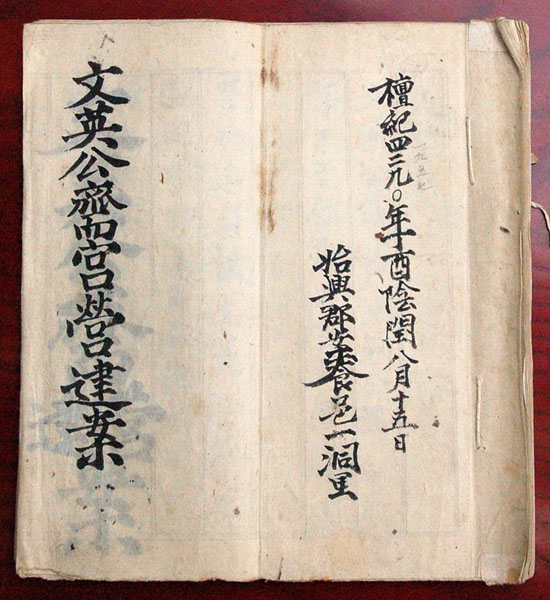 檀紀四二九〇年丁酉陰閏八月十五日
一九五七
始興郡安養邑一洞里
文英公齋宮營建案